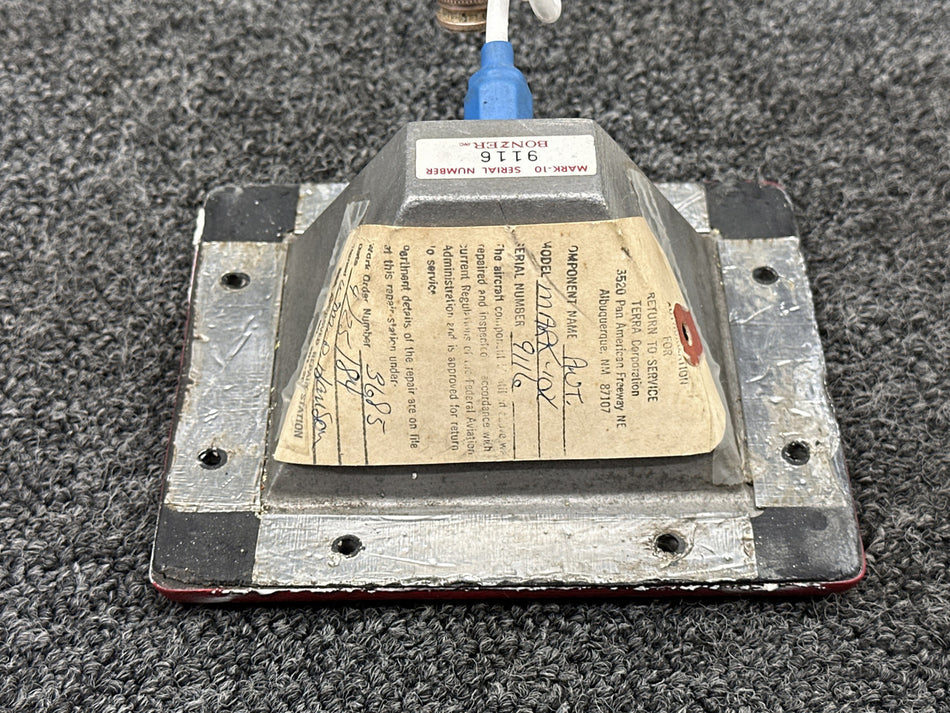 MARK-10 SERIAL NUMBER
9116
BONZER INC
FOR
RETURN TO SERVICE
TERRA Corporation
3520 Pan American Freeway NE
Albuquerque, NM 87107
OMPONENT NAME ANT.
MODEL MARK-10X
SERIAL NUMBER 9116
The aircraft component
repaired and inspected accordance with
current Regulations of the Federal Aviation
Administration and is approved for return
to service
Pertinent details of the repair are on file
at this repair station under
Work Order Number 3685
STATION